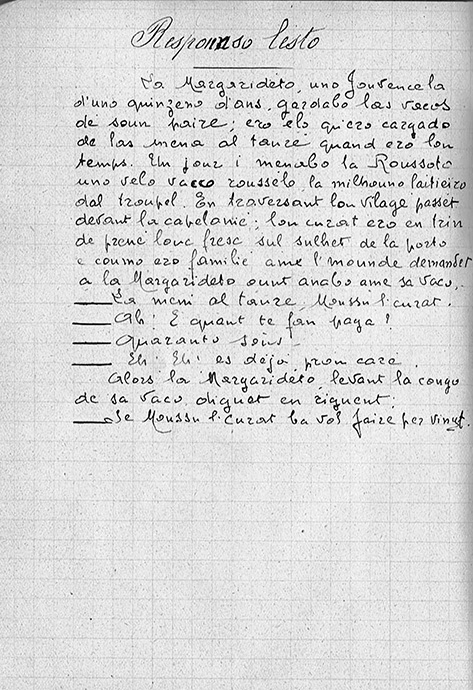 Responso lesto
La Margarideto, uno jouvencela
d'uno quinzeno d'ans, gardabo las vacos
de soun paire; ero elo qu'ero cargado
de las mena al taure quand ero lou
temps. Un jour i menabo la Roussoto
uno velo vacco rousselo, la milhouno laitieiro
dal troupel. En traversant lou vilage passèt
devant la capelanié; lou curat ero en trin
de prene louc fresc sul sulhet de la porto
e coumo ero familié ame l'mounde demandet
a la Margarideto ount anabo ame sa vaco,.
— La meni al taure, Moussu l'curat.
— Ah! E quant te fan paga!
— Quaranto sous!
— Eh! Eh! es dejoi prou care.
Alors la Margarideto, levant la congo
de sa vaco diguet en riguent:
— Se Moussu l'curat ba vol faire per vinut.